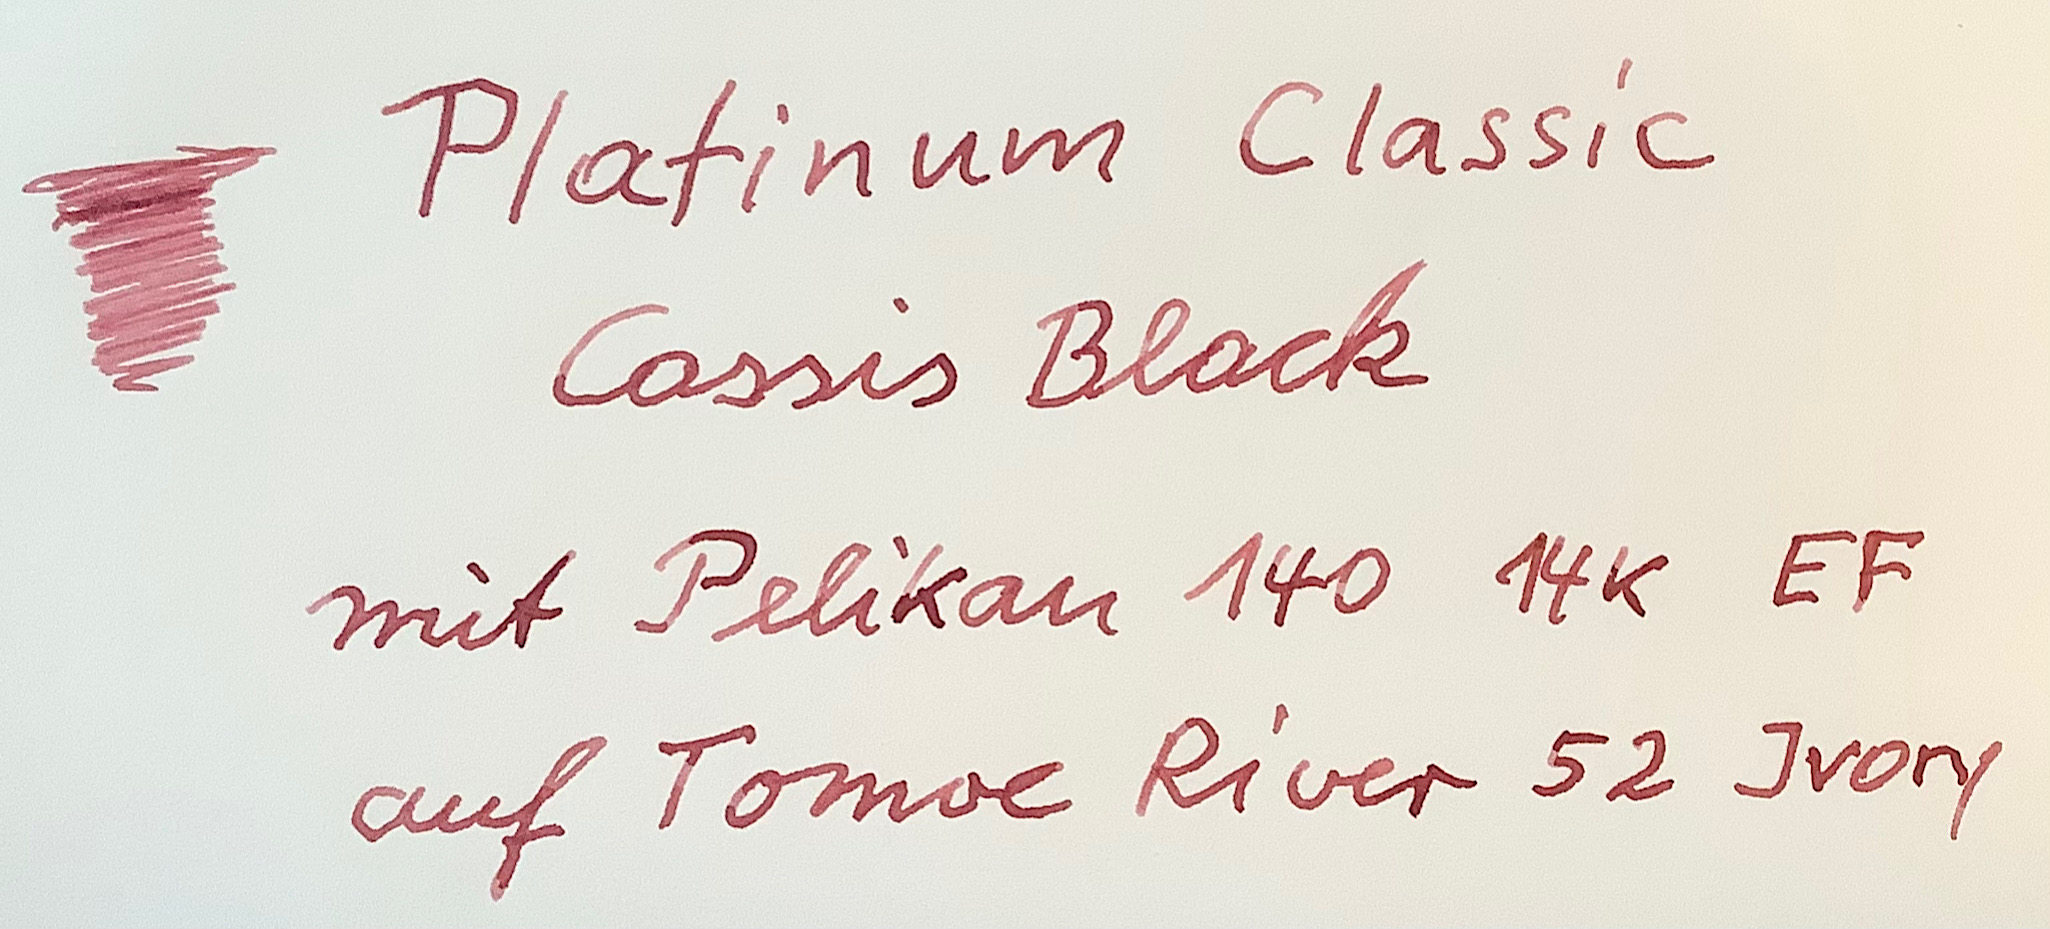 Platinum Classic
Cassis Black
mit Pelikan 140 14K EF
auf Tomoe River 52 Ivory